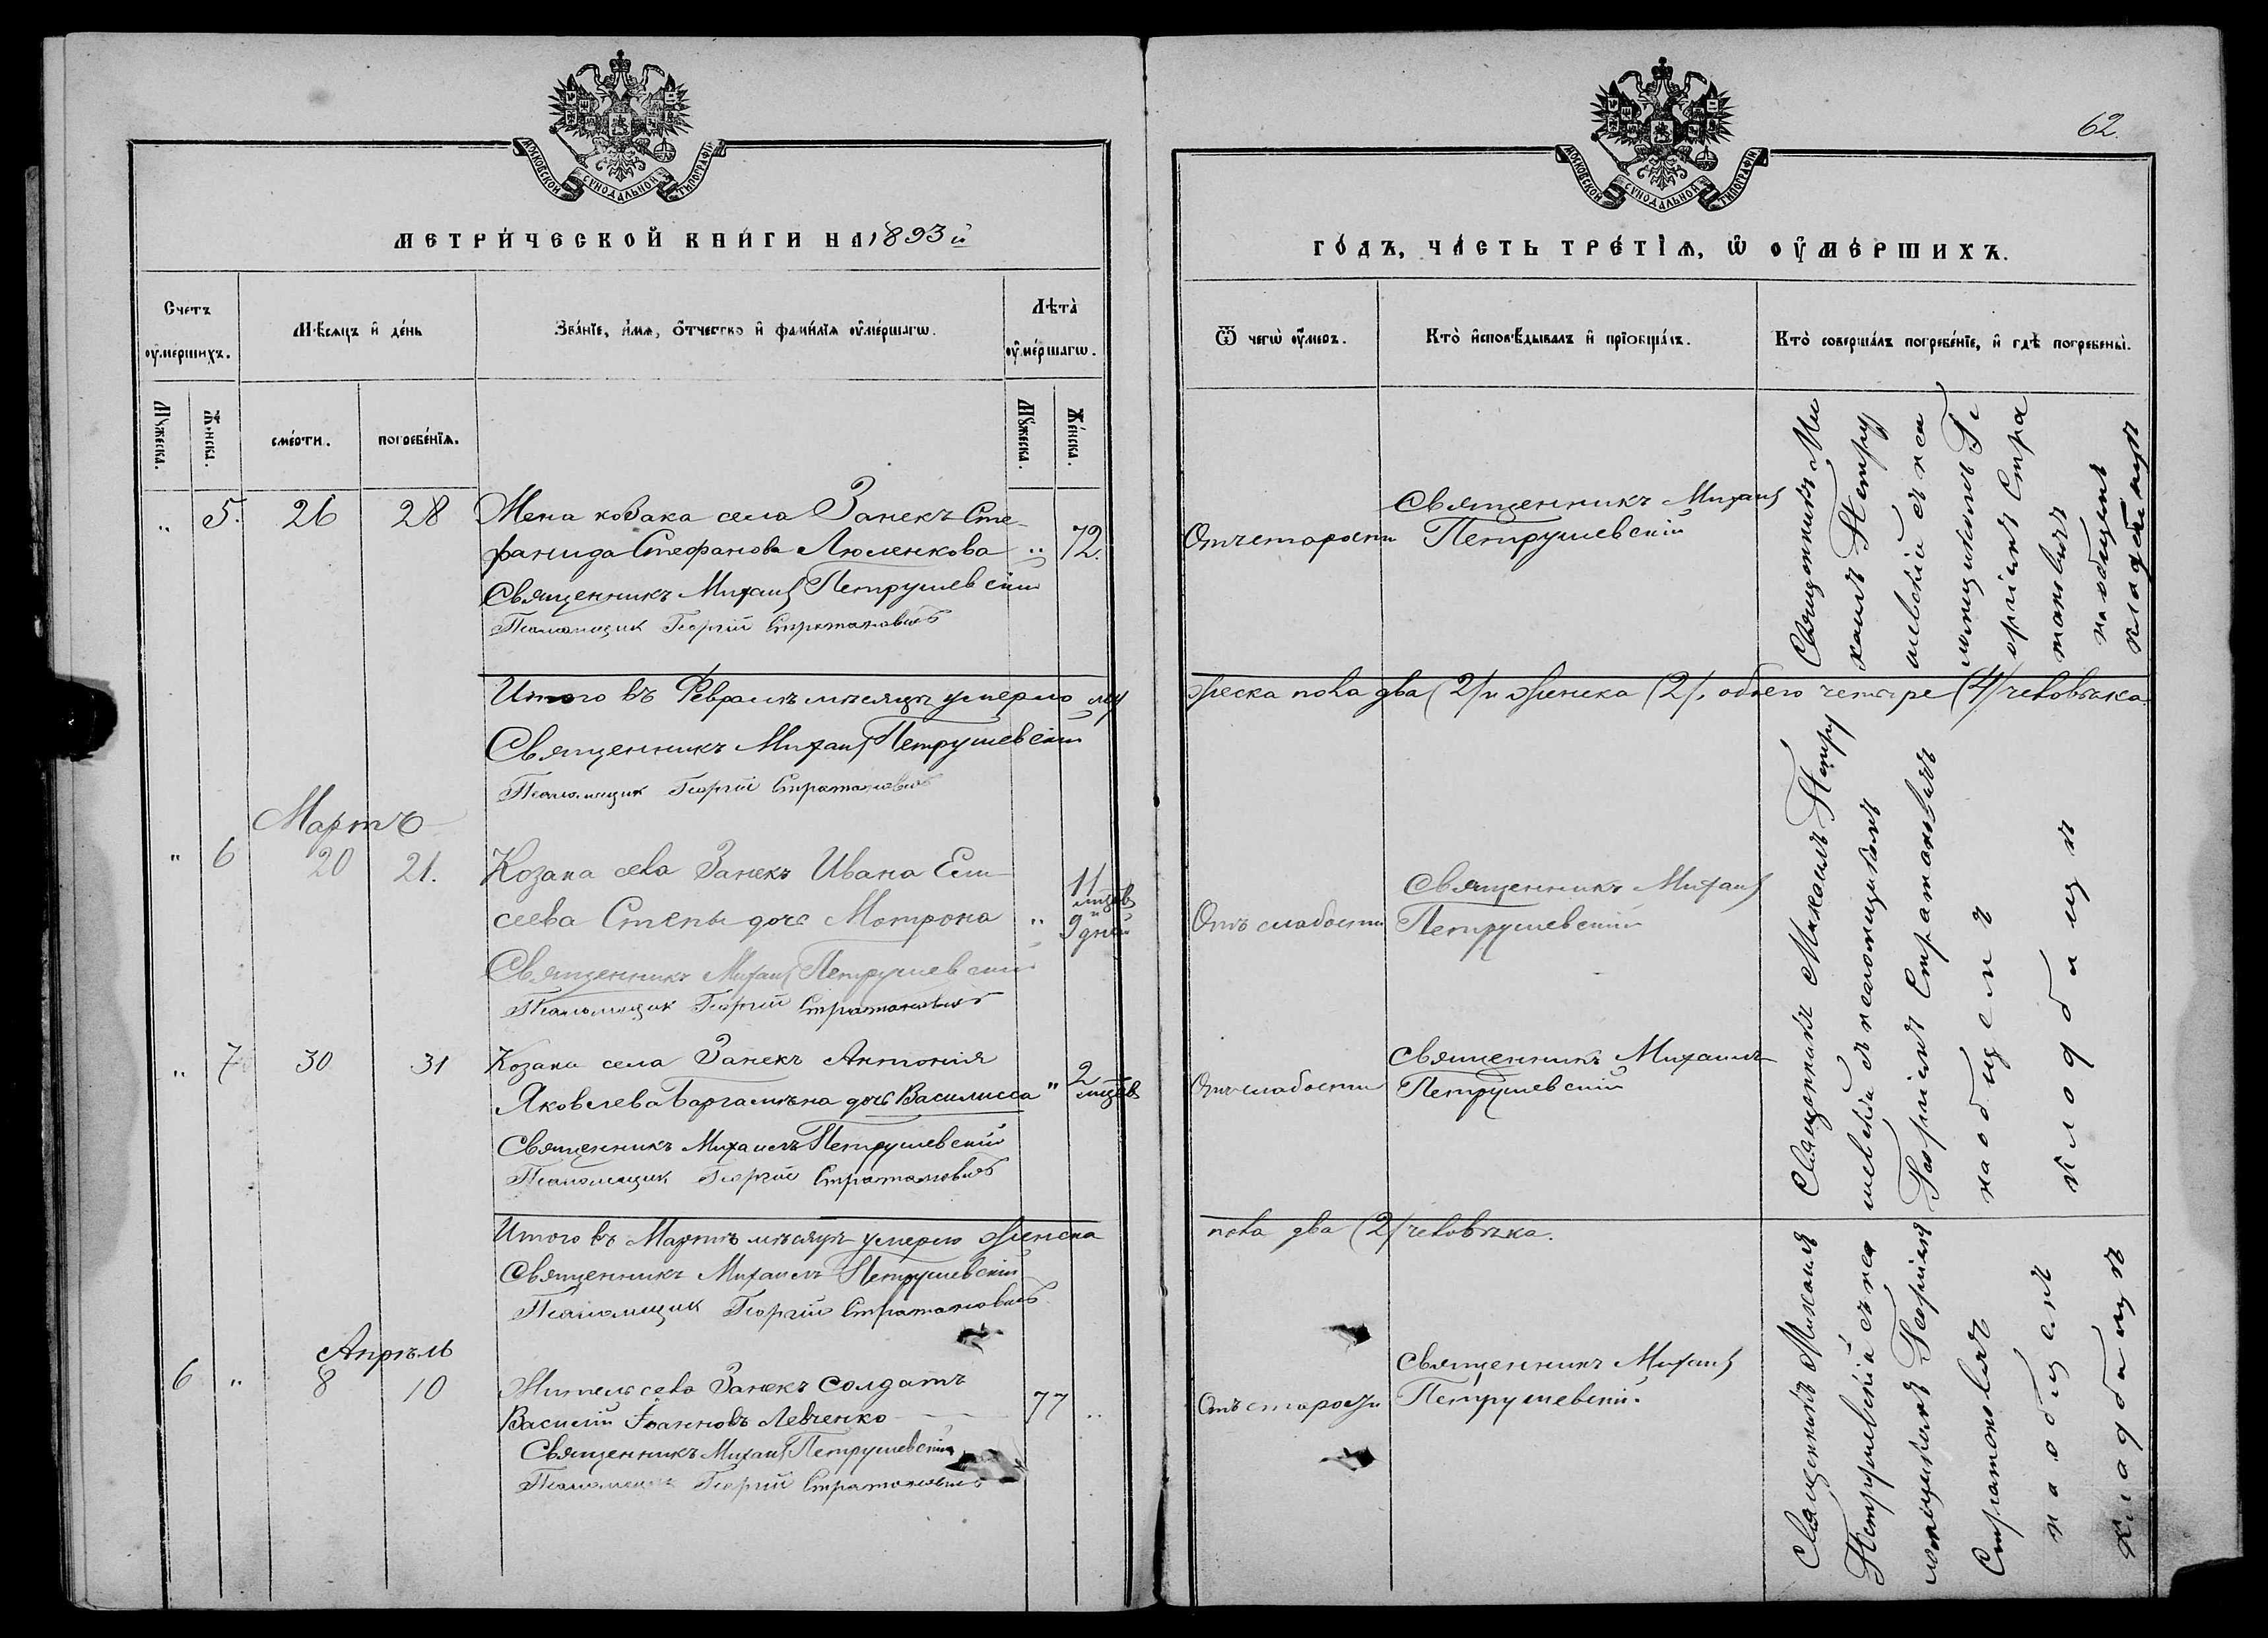 МОСКОВСКОЙ СѴНОДАЛЬНОЙ ТИПОГРАФІИ
МЕТРИ́ЧЕСКОЙ КНИ́ГИ НА 1893й
Счетъ оу҆ме́ршихъ.
Мѣ́сяцъ и҆ де́нь
Зва́нїе, и҆́мѧ, ѻ҆́тчество и҆ фами́лїѧ оу҆ме́ршагѡ.
Лѣта̀ оу҆ме́ршагѡ.
Мꙋ́жеска.
Же́нска.
сме́рти.
погребе́нїѧ.
Мꙋ́жеска.
Же́нска.
" 5. 26 28 Жена козака села Занекъ Сте-
фанида Стефанова Люленкова " 72.
Священникъ Михаил Петрушевскій
Псаломщик Георгій Стратановичъ
Итого въ Февралѣ мѣсяцѣ умерло му
Священникъ Михаил Петрушевскій
Псаломщик Георгій Стратановичъ
Мартъ
" 6 20 21. Козака села Занекъ Ивана Ели-
сеева Степы дочь Матрона " 11 мцевъ и 9 дней
Священникъ Михаил Петрушевскій
Псаломщик Георгій Стратановичъ
" 7 30 31 Козака села Занекъ Антонія
Яковлева дочь Василисса " 2 мцевъ
Священникъ Михаилъ Петрушевскій
Псаломщик Георгій Стратановичъ
Итого въ Мартѣ мѣсяцѣ умерло женска
Священникъ Михаилъ Петрушевскій
Псаломщик Георгій Стратановичъ
Апрѣль
6 " 8 10 Житель села Занекъ солдатъ
Василій Іоанновъ Левченко 77 "
Священникъ Михаил Петрушевскій
Псаломщикъ Георгій Стратановичъ
62.
МОСКОВСКОЙ СѴНОДАЛЬНОЙ ТИПОГРАФІИ
ГО́ДЪ, ЧА́СТЬ ТРЕ́ТІѦ, Ѡ҆ ОУ҆МЕ́РШИХЪ.
Ѿ чегѡ̀ оу҆́меръ.
Кто̀ и҆сповѣ́дывалъ и҆ прїобща́лъ.
Кто̀ соверша́лъ погребе́нїе, и҆ гдѣ̀ погребены̀.
Отъ старости
Священникъ Михаил
Петрушевскій
Священникъ Ми
хаилъ Петру
шевскій съ пса
ломщикомъ Ге
оргіемъ Стра
тановичъ
на общемъ
кладбищѣ
жеска пола два (2) и женска (2), обоего четыре (4) человѣка.
Отъ слабости
Священникъ Михаил
Петрушевскій
Отъ слабости
Священникъ Михаилъ
Петрушевскій
Священникъ Михаилъ Петру
шевскій съ псаломщикомъ
Георгіемъ Стратановичъ
на общемъ
кладбищѣ
пола два (2) человѣка.
Отъ старости
Священникъ Михаил
Петрушевскій.
Священникъ Михаилъ
Петрушевскій съ пса
ломщикомъ Георгіемъ
Стратановичъ
на общемъ
кладбищѣ